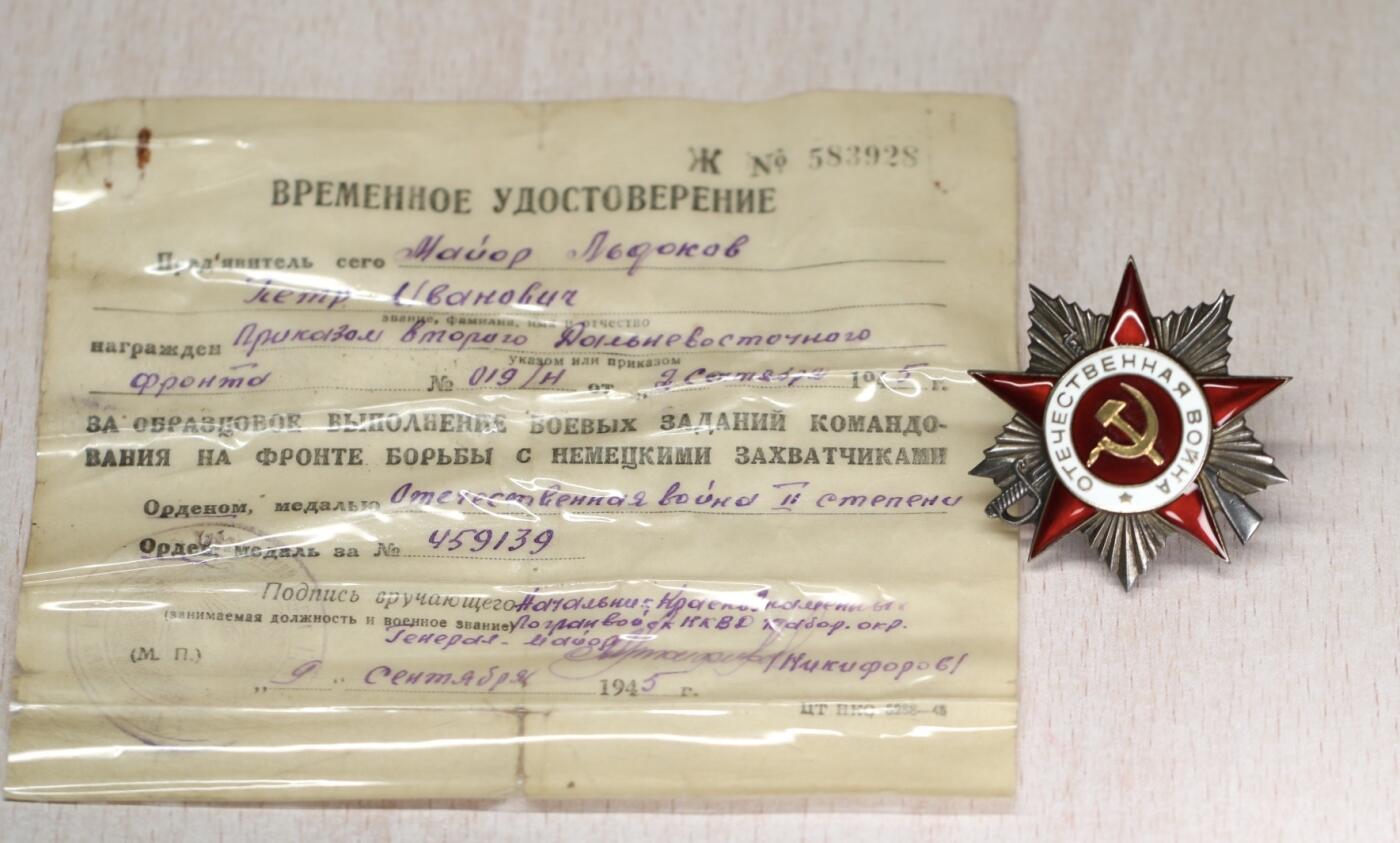 Ж № 583928
ВРЕМЕННОЕ УДОСТОВЕРЕНИЕ
Пред'явитель сего Майор Льдоков
Петр Иванович
звание, фамилия, имя и отчество
награжден Приказом Второго Дальневосточного
указом или приказом
фронта № 019/Н от „2 Сентября 1945 г.
ЗА ОБРАЗЦОВОЕ ВЫПОЛНЕНИЕ БОЕВЫХ ЗАДАНИЙ КОМАНДО-
ВАНИЯ НА ФРОНТЕ БОРЬБЫ С НЕМЕЦКИМИ ЗАХВАТЧИКАМИ
Орденом, медалью Отечественная война II степени
Орден, медаль за № 459139
Подпись вручающего Начальник Краснознаменных
(занимаемая должность и военное звание) Погранвойск НКВД Хабор. окр.
Генерал-майор
(М. П.) /Никифоров/
„9" Сентября 1945 г.
ЦТ НКО 5288—45
ОТЕЧЕСТВЕННАЯ ВОЙНА